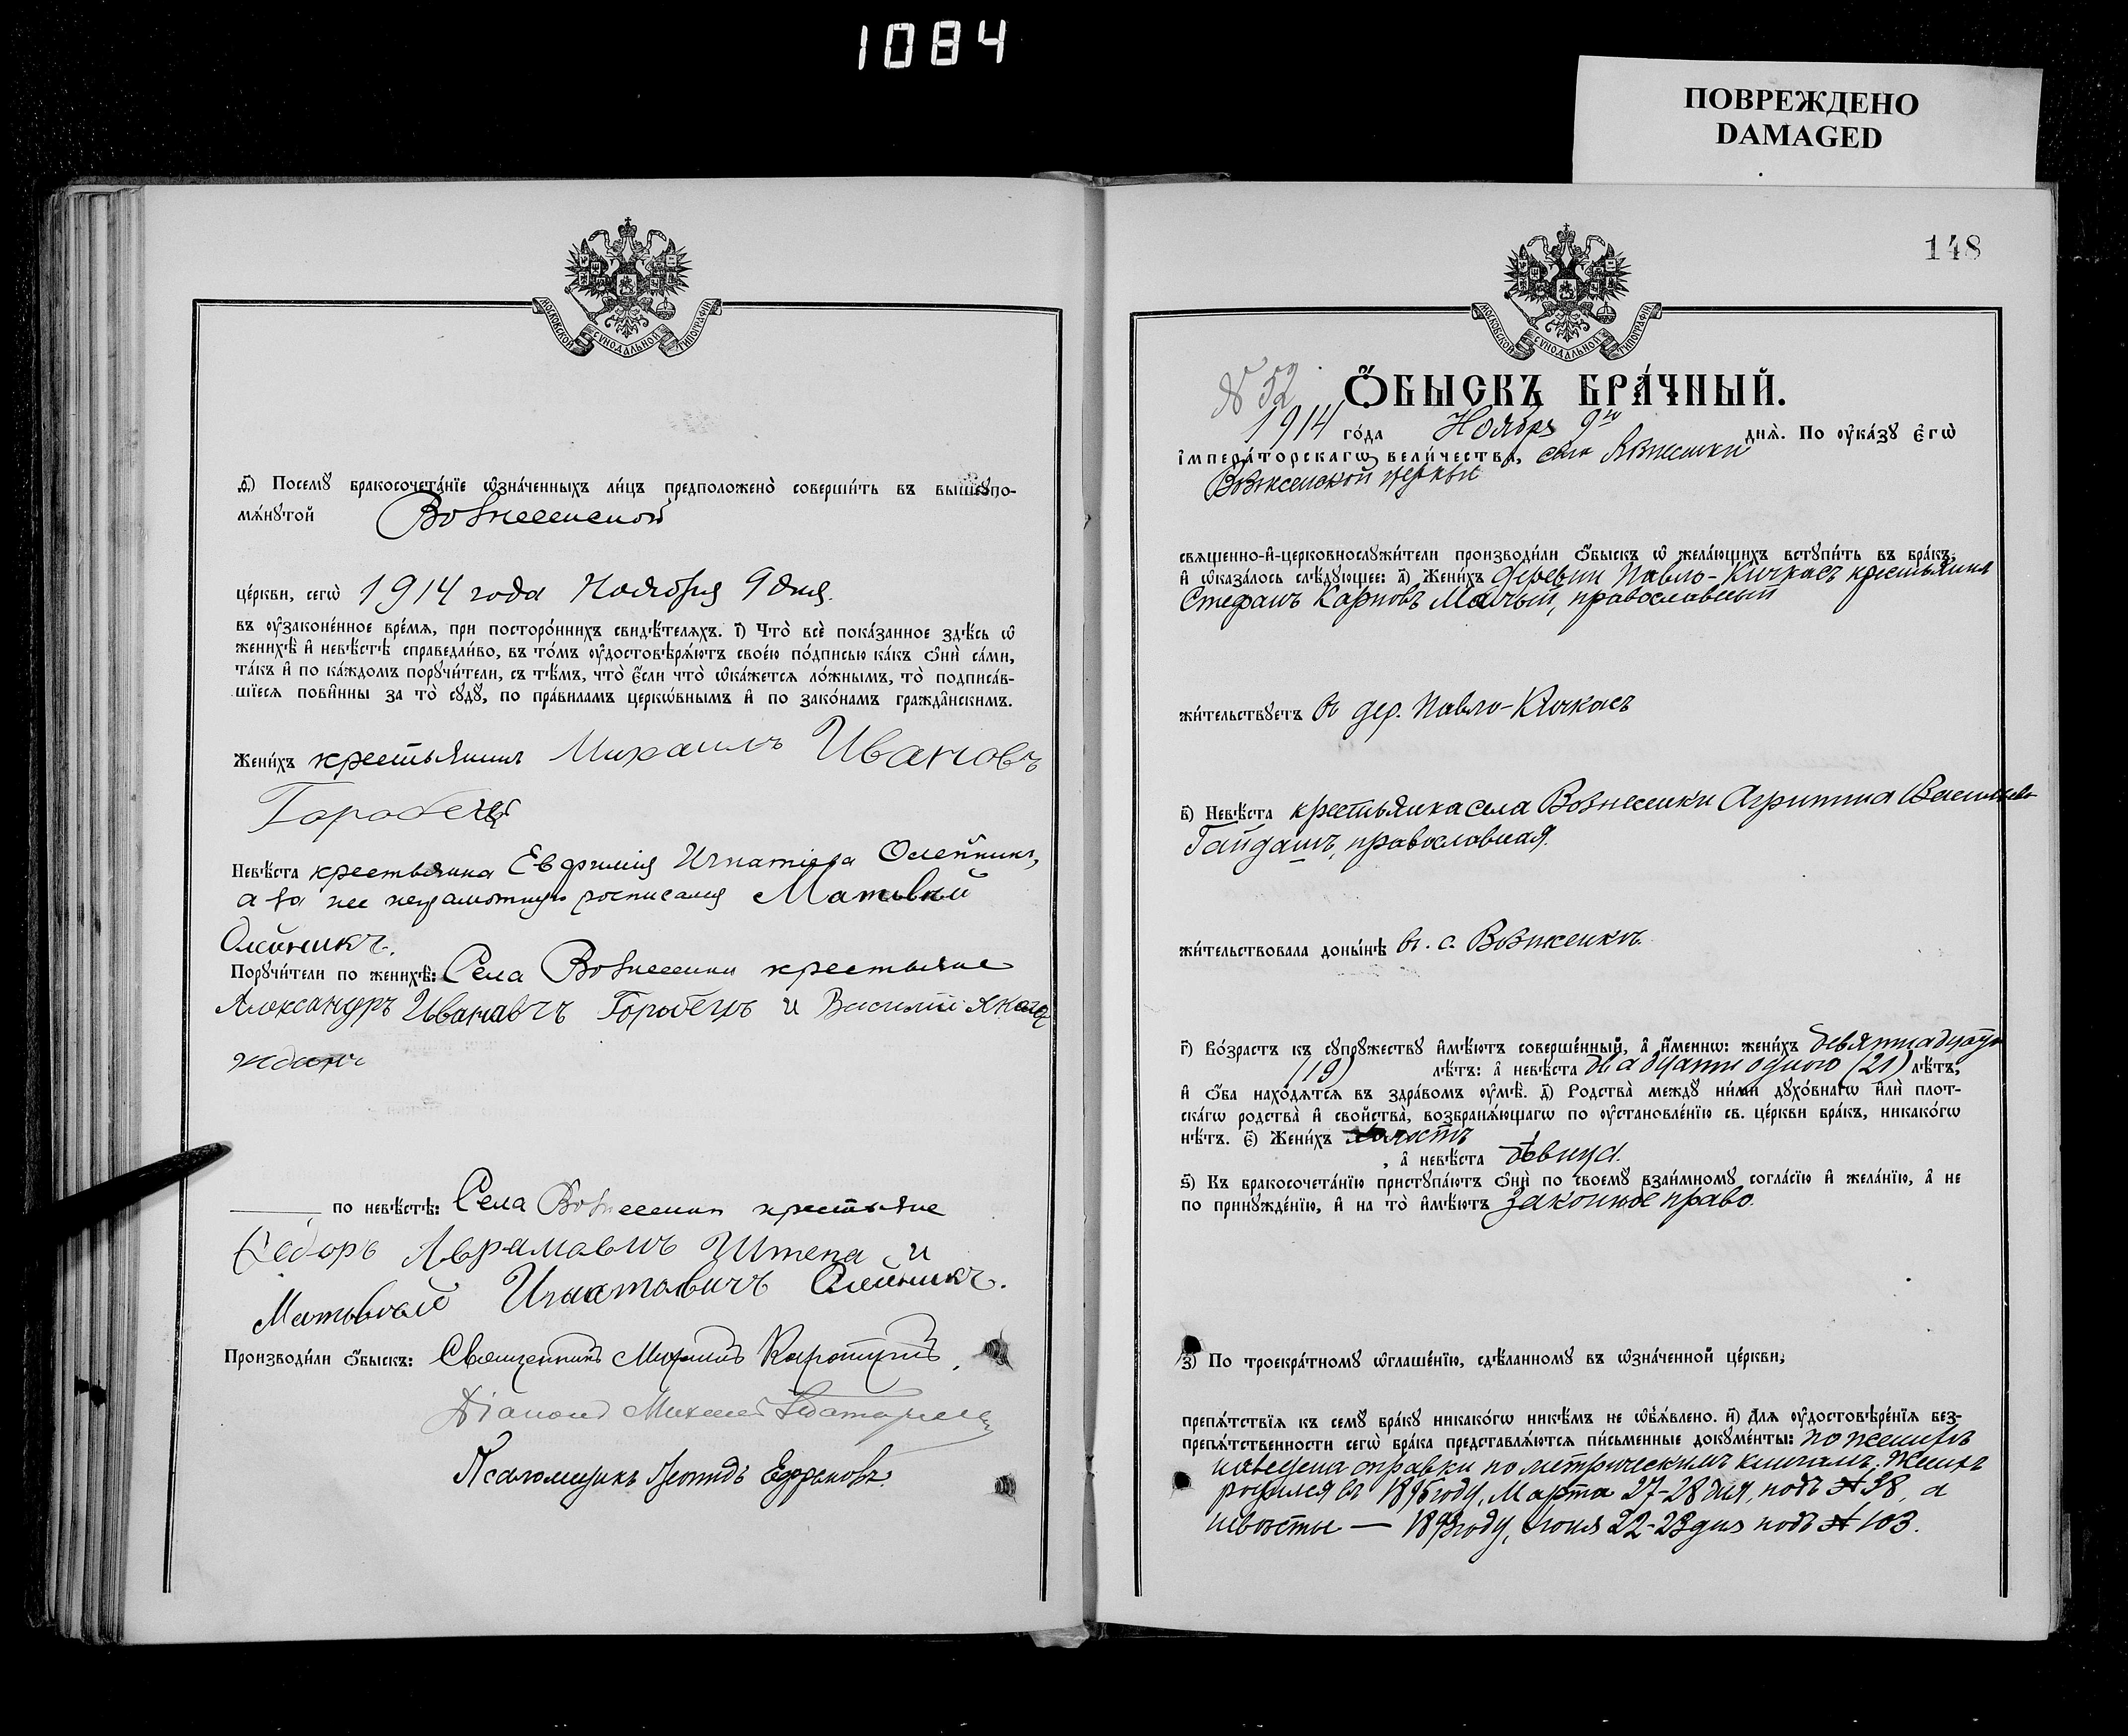 1084
ПОВРЕЖДЕНО
DAMAGED
МОСКОВСКОЙ СѴНОДАЛЬНОЙ ТИПОГРАФІИ
ѳ҃) Посемꙋ бракосочета́нїе ѡзна́ченныхъ ли́цъ предположено̀ соверши́ть въ вышеꙋпо-
мѧ́нꙋтой Вознесенской
це́ркви, сегѡ̀ 1914 года Ноября 9 дня.
въ оу҆зако́ненное вре́мѧ, при посторо́ннихъ свидѣ́телѧхъ. і҃) Что̀ всѐ пока́занное здѣ́сь ѡ
женихѣ̀ и҆ невѣ́стѣ справедли́во, въ то́мъ оу҆достовѣрѧ́ютъ свое́ю по́дписью ка́къ ѻ҆нѝ са́ми,
та́къ и҆ по ка́ждомъ порꙋчи́тели, съ тѣ́мъ, что̀ є҆́сли что̀ ѡка́жетсѧ ло́жнымъ, то̀ подписа́в-
шїесѧ пови́нны за то̀ сꙋдꙋ̀, по пра́виламъ церкѡ́внымъ и҆ по зако́намъ гражда́нскимъ.
Жени́хъ крестьянинъ Михаилъ Ивановъ
Горобецъ
Невѣ́ста крестьянка Евфимія Игнатіева Олейникъ,
а за нее неграмотную росписался Матвѣй
Олейникъ.
Порꙋчи́тели по женихѣ̀: Села Вознесенки крестьяне
Александръ Ивановичъ Горобецъ и Василій
по невѣ́стѣ: Села Вознесенки крестьяне
Ѳедоръ Аврамавичъ Штепа и
Матвѣй Игнатовичъ Олейникъ.
Производи́ли ѻ҆́быскъ: Священникъ Михаилъ
Діаконъ Михаил
Псаломщикъ Леонидъ Ефремовъ.
148
МОСКОВСКОЙ СѴНОДАЛЬНОЙ ТИПОГРАФІИ
N 52
Ѻ҆́БЫСКЪ БРА́ЧНЫЙ.
1914 го́да Ноября 9го днѧ̀. По оу҆ка́зꙋ є҆гѡ̀
і҆мпера́торскагѡ вели́чества, села Вознесенки
Вознесенской церкви
свѧщенно-и҆-церковнослꙋжи́тели производи́ли ѻ҆́быскъ ѡ жела́ющихъ встꙋпи́ть въ бра́къ,
и҆ ѡказа́лось слѣ́дꙋющее: а҃) Жени́хъ деревни Павло-Кичкасъ крестьянинъ
Стефанъ Карповъ Малый, православный
жи́тельствꙋетъ въ дер. Павло-Кичкасъ
в҃) Невѣ́ста крестьянка села Вознесенки Агрипина Васильева
Гайдашъ, православная.
жи́тельствовала доны́нѣ въ с. Вознесенкѣ.
г҃) Во́зрастъ къ сꙋпрꙋжествꙋ и҆мѣ́ютъ соверше́нный, а҆ и҆́менно: жени́хъ девятнадцати
(19) лѣ́тъ: а҆ невѣ́ста двадцати одного (21) лѣ́тъ,
и҆ ѻ҆́ба нахо́дѧтсѧ въ здра́вомъ оу҆мѣ̀. д҃) Родства̀ междꙋ ни́ми дꙋхо́внагѡ и҆лѝ плот-
ска́гѡ родства̀ и҆ сво́йства̀, возбранѧ́ющагѡ по оу҆становле́нїю св. це́ркви бра́къ, никако́гѡ
нѣ́тъ. є҃) Жени́хъ холостъ
, а҆ невѣ́ста дѣвица.
ѕ҃) Къ бракосочета́нїю пристꙋпа́ютъ ѻ҆нѝ по своемꙋ̀ взаи́мномꙋ согла́сїю и҆ жела́нїю, а҆ не
по принꙋжде́нїю, и҆ на то̀ и҆мѣ́ютъ законное право.
з҃) По троекра́тномꙋ ѡглаше́нїю, сдѣ́ланномꙋ въ ѡзна́ченной це́ркви,
препѧ́тствїѧ къ семꙋ̀ бра́кꙋ никако́гѡ никѣ́мъ не ѡбъѧ́влено. и҃) Длѧ̀ оу҆достовѣре́нїѧ без-
препѧ́тственности сегѡ̀ бра́ка представлѧ́ютсѧ пи́сьменные докꙋме́нты: по женихѣ
наведена справки по метрическимъ книгамъ. Женихъ
родился въ году, Марта 27-28 дня, подъ № 38, а
невѣсты — 1893 году, іюня 22-23 дня подъ № 103.